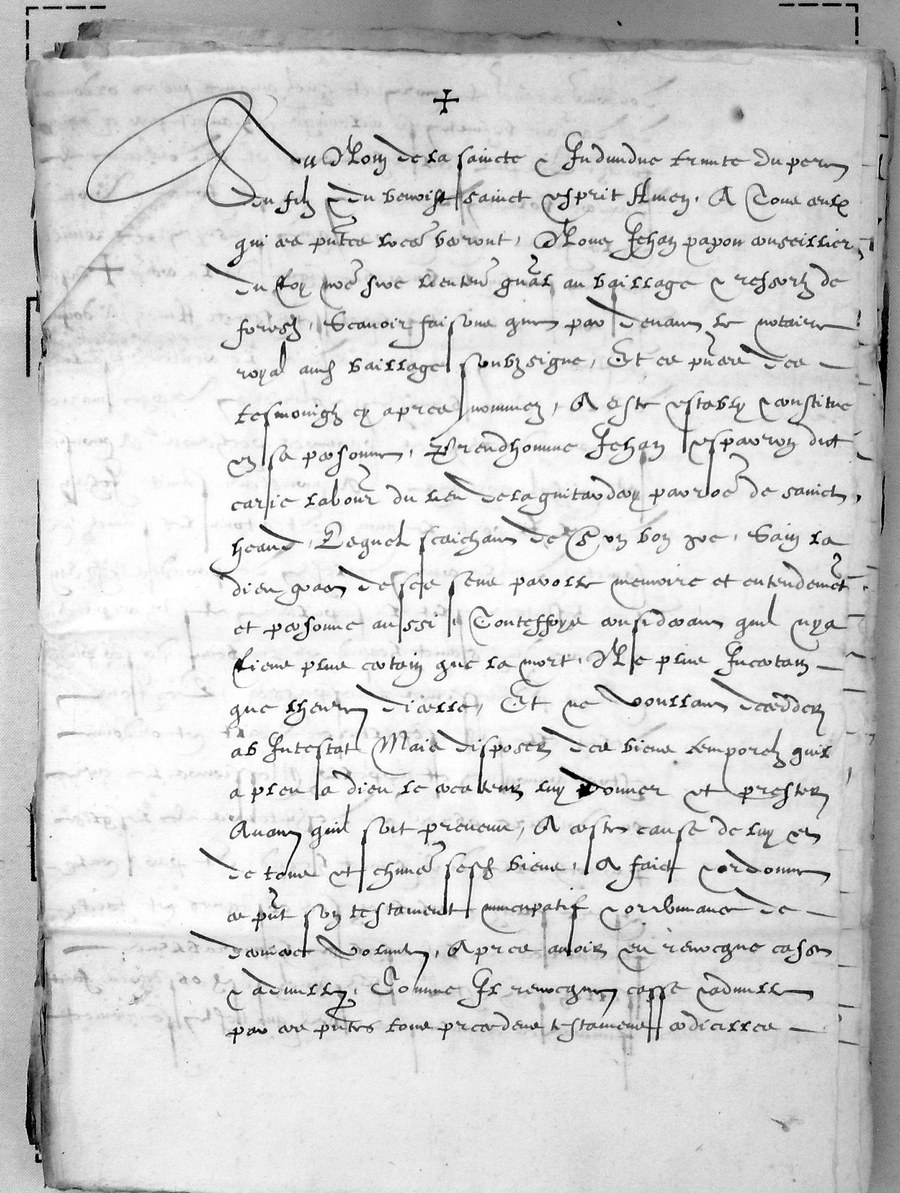 +
Au Nom de la saincte & Indiuidue trinite du pere
du filz & du benoist sainct esprit Amen. A Tous ceulx
qui ces pntes lres verront, Nous Jehan papon conseillier
du Roy nre sire lieuten gnal au bailliage & ressort de
forestz Scauoir faisons que par deuant le notaire
royal audt bailliage soubzsigne, Et es pnces des
tesmoingz cy apres nommez, A este estably & constitue
en sa personne, Preudhomme Jehan dict
labour du lieu de la parroe de sainct
heand, Lequel scaichant de son bon gre, Sain la
dieu grace de ses sens parolle memoire et entendemet
et personne aussi, Touteffoys considerant quil nya
Riens plus certain que la mort, Ne plus Incertain
que lheure dicelle, Et ne voullant decedder
ab Intestat Mais disposer des biens temporelz quil
a pleu a dieu le createur luy donner et prester
Auant quil soit preuenu, A ceste cause de luy et
de tous et chuns sesd biens, A faict & ordonne
ce pnt son testament nuncupatif & ordonnance de
derniere volunte, Apres auoir eu reuocque casse
& adnulle, Comme Il reuocque casse & adnulle
par ces pntes tous precedens testamens codicilles